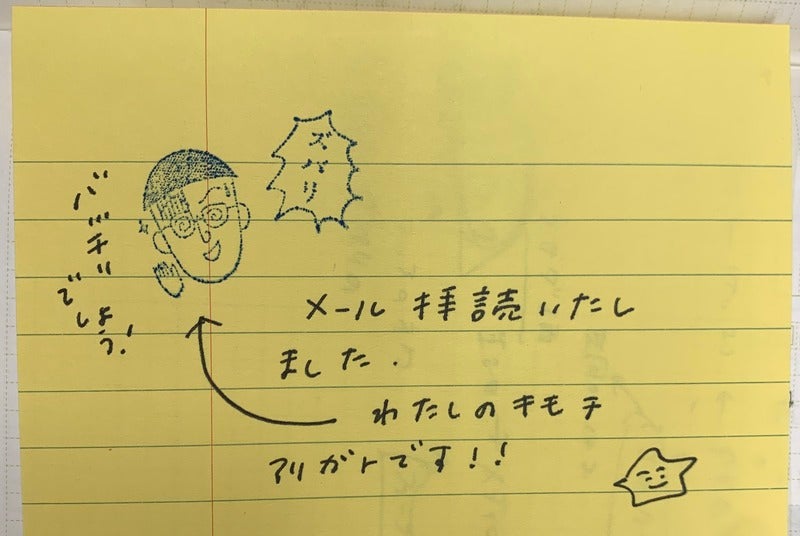 ズバリ
バッチリ
でしょう!
メール拝読いたし
ました.
わたしのキモチ
アリガトです!!